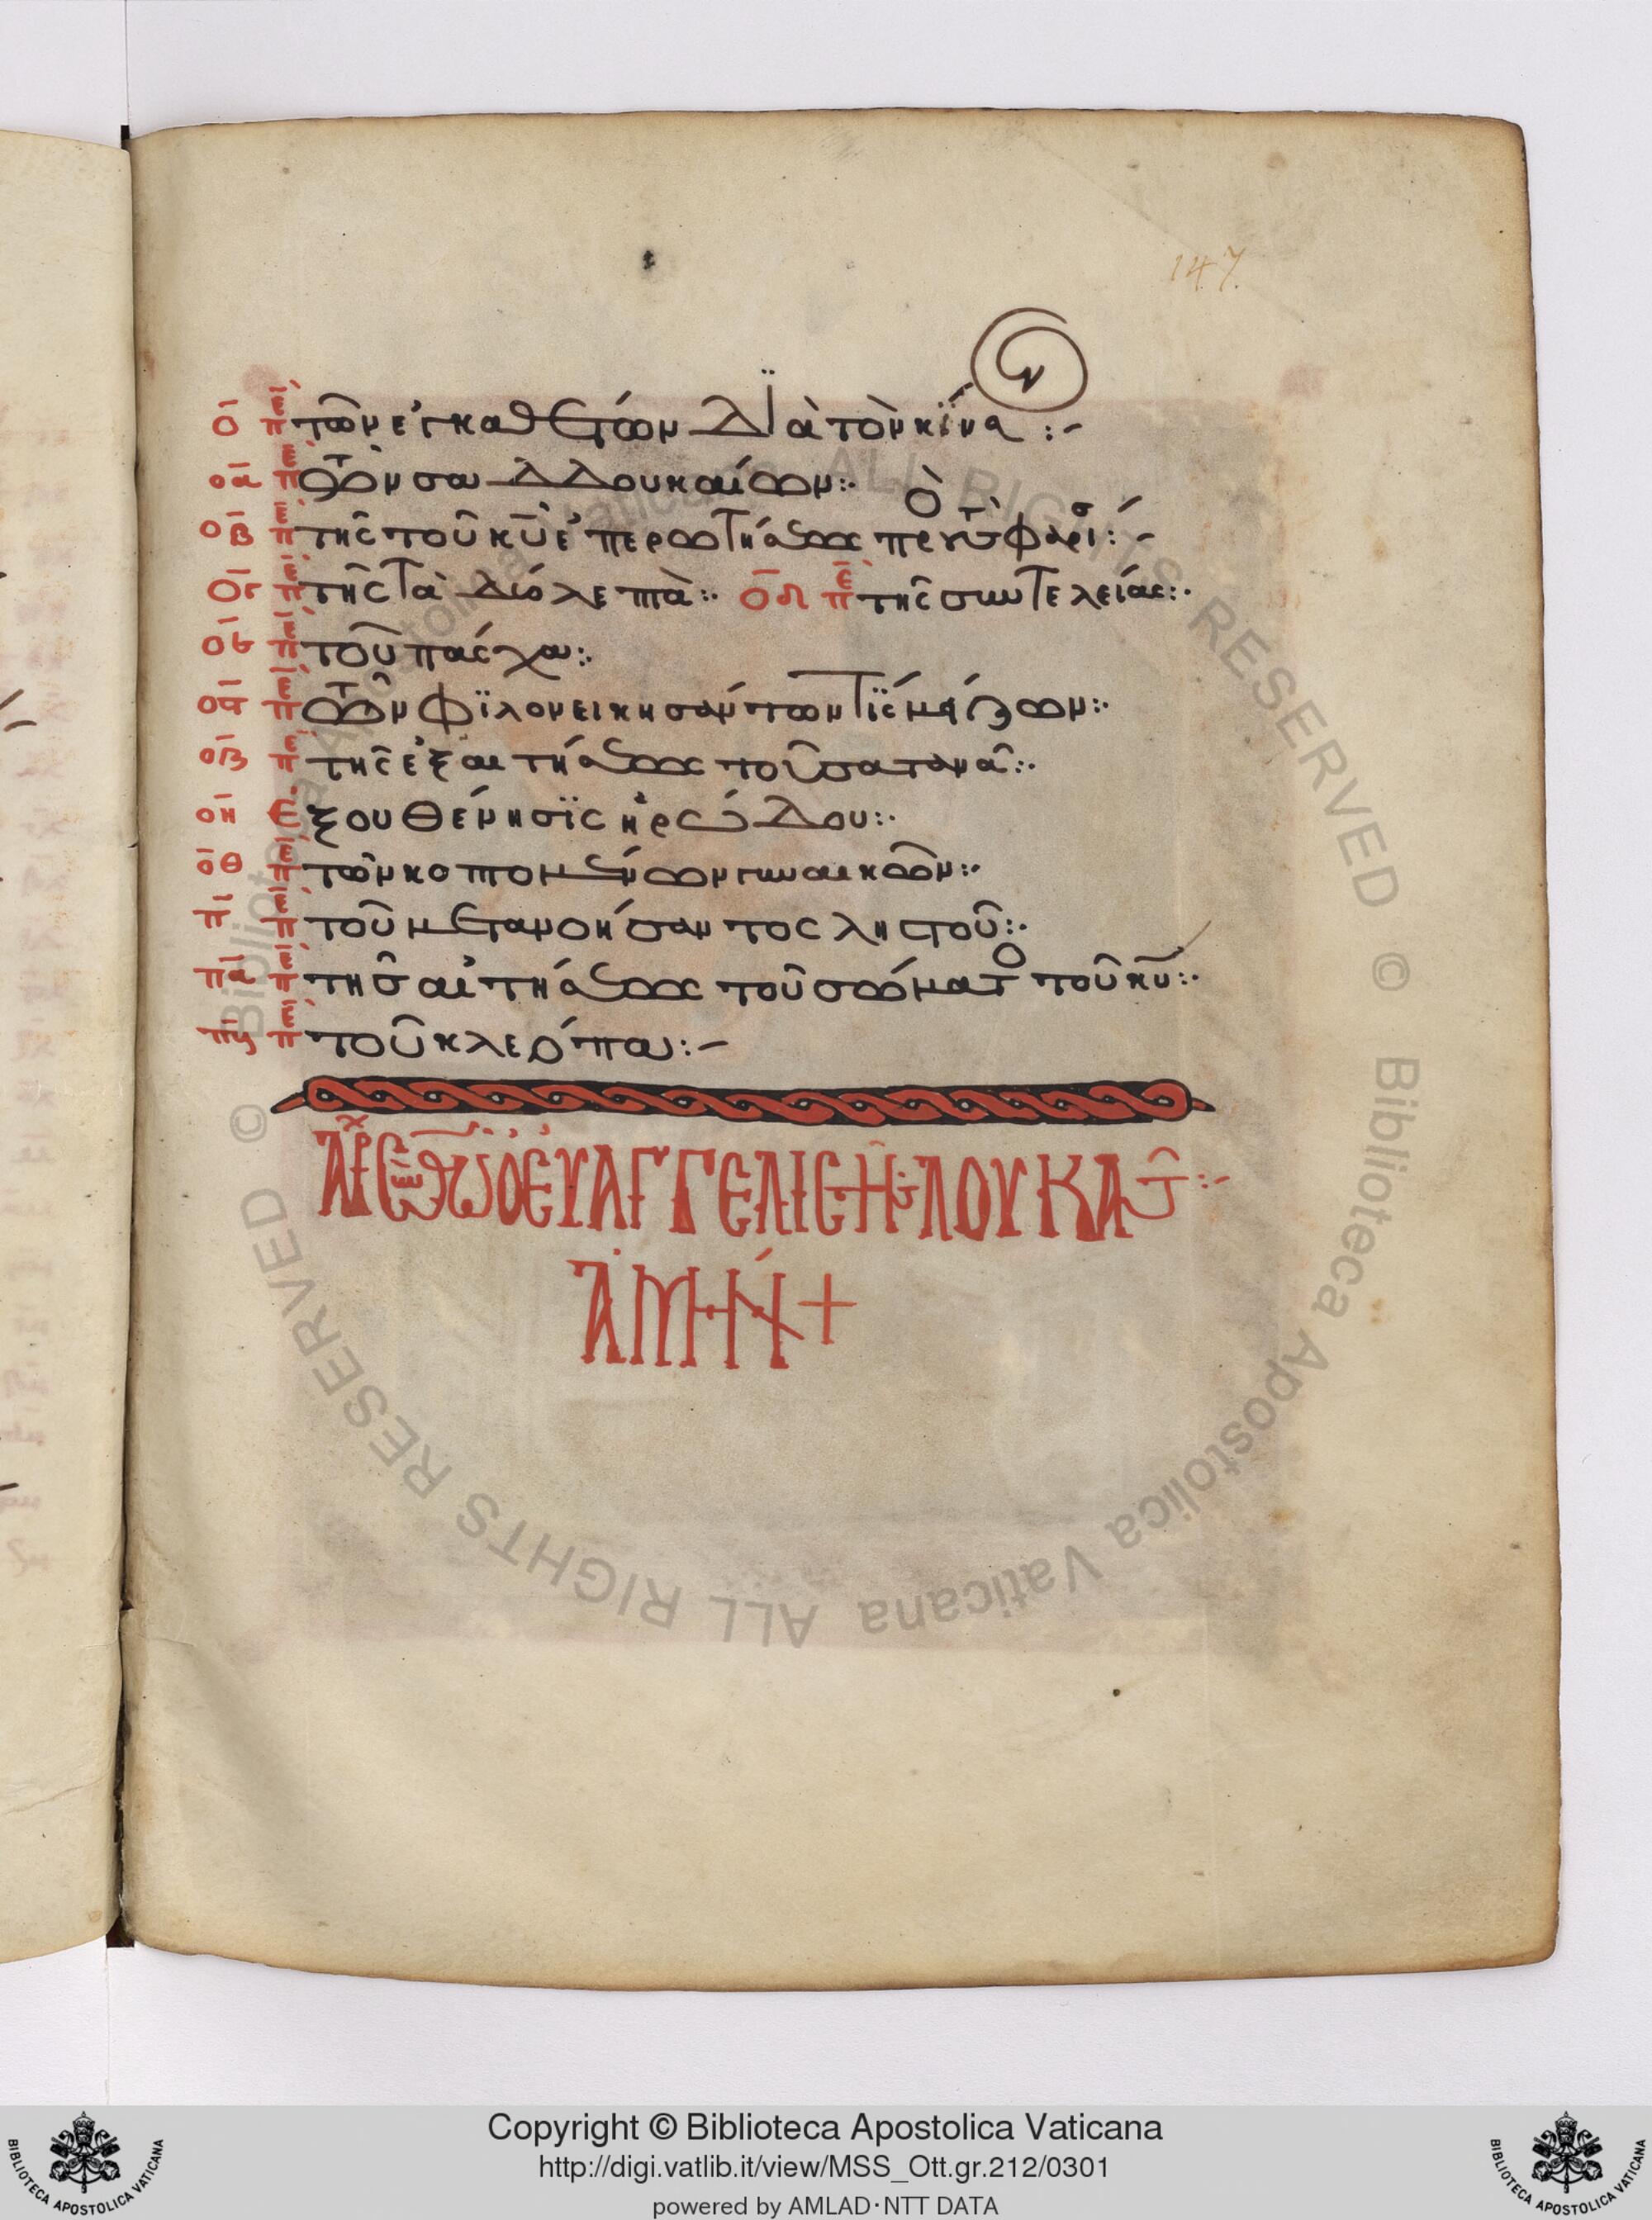 147
ο̄ πε̄ρι τῶν ἐγκαθέτων διὰ τὸν κῆνσ :-
ο̄ᾱ πε̄ρι τῶν σαδδουκαίων :·
ο̄β̄ πε̄ρι τῆς τοῦ κ̄ῡ ἐπερωτήσεως πρ τοὺς φαρι :-
ο̄γ̄ πε̄ρι τῆς τὰ δύο λεπτὰ :· ο̄δ̄ πε̄ρι τῆς συντελείας :·
ο̄ε̄ πε̄ρι τοῦ πάσχα :·
ο̄ς̄ πε̄ρι τῶν φϊλονεικησάντων τίς μείζων :·
ο̄ζ̄ πε̄ρι τῆς ἐξαιτήσεως τοῦ σατανᾶ :·
ο̄η̄ Ἐξουθένησϊς ἡρώδου :·
ο̄θ̄ πε̄ρι τῶν κοπτομένων γυναικῶν :·
π̄ πε̄ρι τοῦ μετανοήσαντος ληστοῦ :·
π̄ᾱ πε̄ρι τῆς αἰτήσεως τοῦ σώματο τοῦ κ̄ῡ :·
π̄β̄ πε̄ρι τοῦ κλεόπα :-
ΕΥΑΓΓΕΛΙΣΤΗΣ ΛΟΥΚΑΣ :-
ἈΜΉΝ +
© Biblioteca Apostolica Vaticana ALL RIGHTS RESERVED © Biblioteca Apostolica Vaticana ALL RIGHTS RESERVED
Copyright © Biblioteca Apostolica Vaticana
http://digi.vatlib.it/view/MSS_Ott.gr.212/0301
powered by AMLAD·NTT DATA
BIBLIOTECA APOSTOLICA VATICANA
BIBLIOTECA APOSTOLICA VATICANA